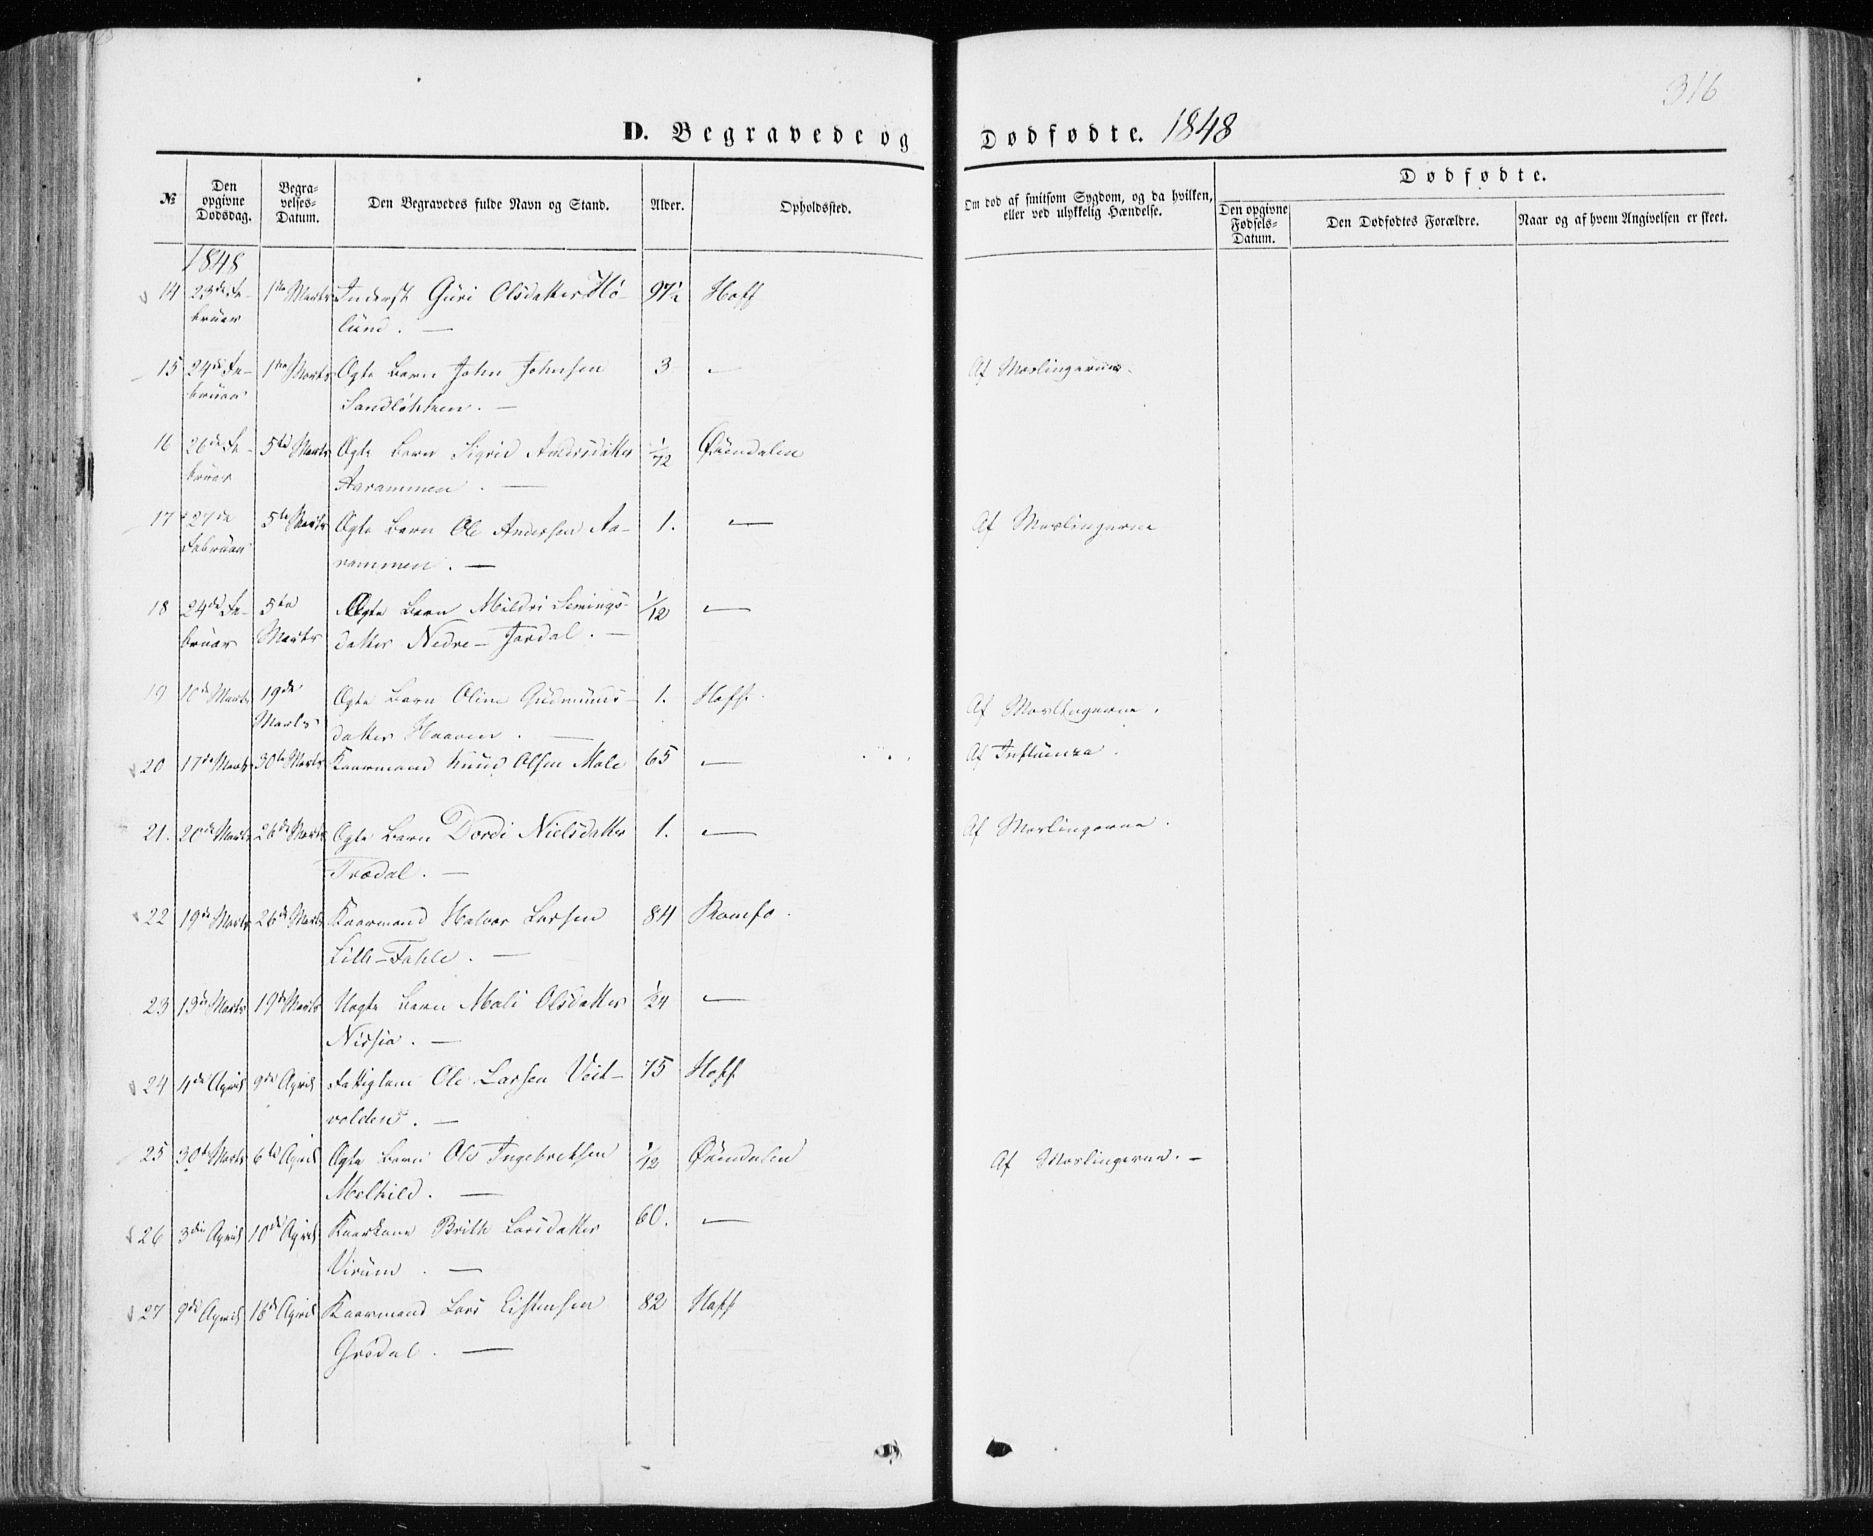 316
D. Begravede og Dødfødte. 1848
№
Den opgivne Dødsdag.
Begravelses-Datum.
Den Begravedes fulde Navn og Stand.
Alder.
Opholdssted.
Om død af smitsom Sygdom, og da hvilken, eller ved ulykkelig Hændelse.
Dødfødte.
Den opgivne Fødsels-Datum.
Den Dødfødtes Forældre.
Naar og af hvem Angivelsen er skeet.
1848
14 23de Fe- 1ste Marts Inderst Guri Olsdatter Hö- 97½ Hoff
bruar lund. —
15 24de Fe- 1ste Marts Ægte Barn John Johnsen 3 — Af Meslingerne.
bruar Sandløkken. —
16 26de Fe- 5te Marts Ægte Barn Sigrid Andersdatter 1/12 Øxendalen
bruar Aarammen. —
17 27de 5te Marts Ægte Barn Ole Andersen Aa- 1. — Af Meslingerne
Februar rammen. —
18 24de Fe- 5te Ægte Barn Mildri Semings- 1/12 —
bruar Marts datter Nedre-Jordal. —
19 10de Marts 19de Ægte Barn Oline Gudmunds- 1. Hoff. Af Meslingerne.
Marts datter Haaven. —
20 17de Marts 30te Marts Kaarmand Knud Olsen Mæle 65 — Af Influenza.
21. 20de Marts 26de Marts Ægte Barn Dordi Nielsdatter 1. — Af Meslingerne.
Trædal. —
22 19de Marts 26de Marts Kaarmand Halvor Larsen 84 Romfo.
Lille-Fahle. —
23 13de Marts 19de Marts Uægte Barn Mali Olsdatter 1/24 —
Nissia. —
24 4de April 9de April Fattiglem Ole Larsen Veit- 75 Hoff
volden. —
25 30te Marts 6te April Ægte Barn Ole Ingebretsen 1/12 Øxendalen Af Meslingerne. —
Melkild. —
26 3die April 10de April Kaarkone Brith Larsdatter 60. —
Virum. —
27 9de April 16de April Kaarmand Lars Eistensen 82 Hoff
Grødal. —